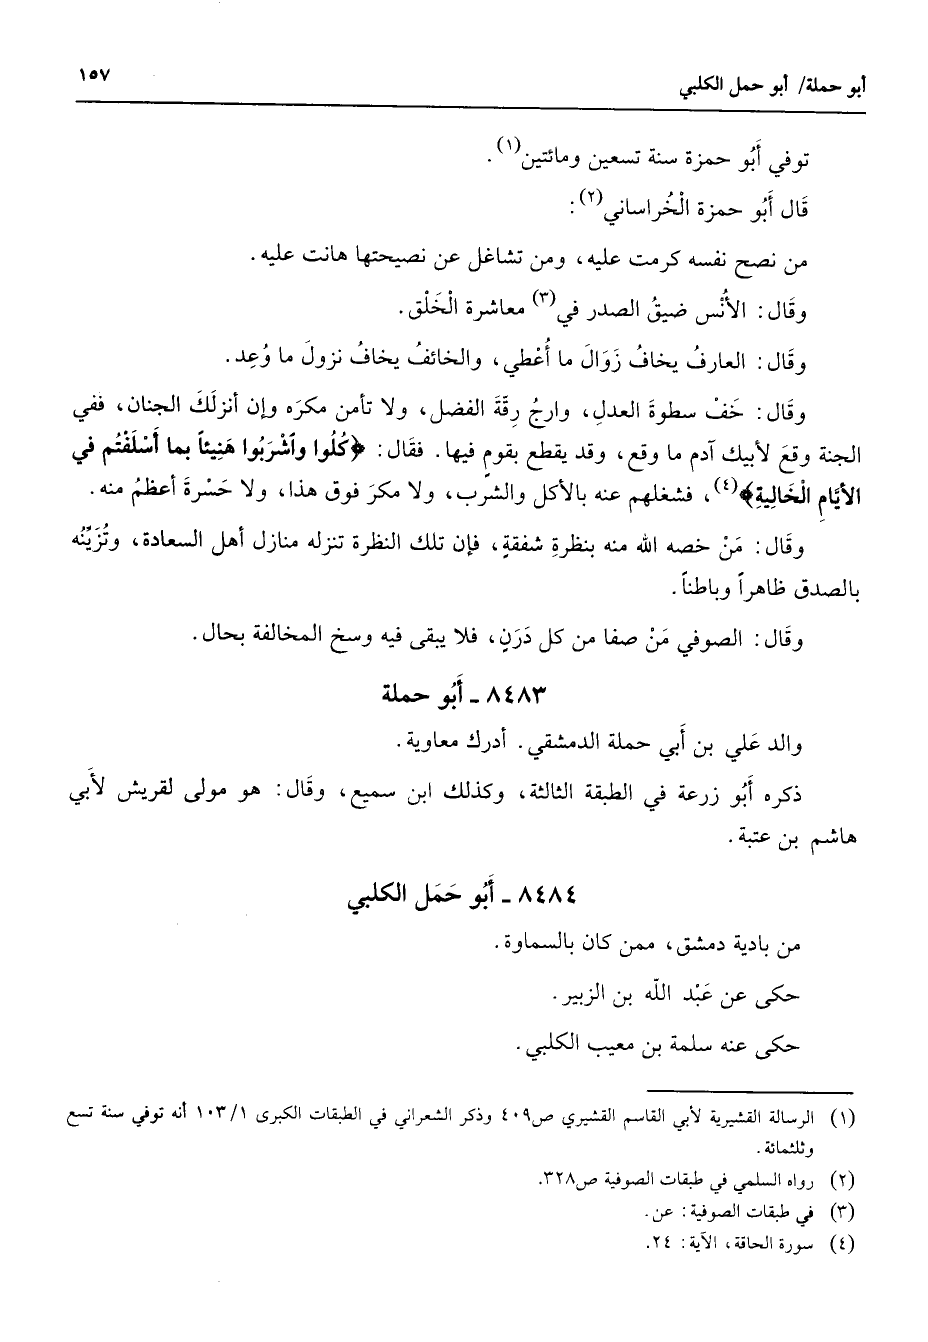 أبو حملة/ أبو حمل الكلبي ١٥٧
توفي أَبُو حمزة سنة تسعين ومائتين(١).
قَال أَبُو حمزة الْخُراساني(٢):
من نصح نفسه كرمت عليه، ومن تشاغل عن نصيحتها هانت عليه.
وقَال: الأُنْس ضيقُ الصدر في(٣) معاشرة الْخَلْق.
وقَال: العارفُ يخافُ زَوَالَ ما أُعْطي، والخائفُ يخافُ نزولَ ما وُعِد.
وقَال: خَفْ سطوةَ العدلِ، وارجُ رِقَّةَ الفضل، ولا تأمن مكرَه وإن أنزلَكَ الجنان، ففي
الجنة وقعَ لأبيك آدم ما وقع، وقد يقطع بقومٍ فيها. فقَال: ﴿كُلُوا وٱشْرَبُوا هَنِيئاً بما أَسْلَفْتُم في
الأيَّامِ الْخَالِيةِ﴾(٤)، فشغلهم عنه بالأكل والشرب، ولا مكرَ فوق هذا، ولا حَسْرةَ أعظمُ منه.
وقَال: مَنْ خصه الله منه بنظرةِ شفقةٍ، فإن تلك النظرة تنزله منازل أهل السعادة، وتُزَيِّنُه
بالصدق ظاهراً وباطناً.
وقَال: الصوفي مَنْ صفا من كل دَرَنٍ، فلا يبقى فيه وسخ المخالفة بحال.
٨٤٨٣ ـ أَبُو حملة
والد عَلي بن أَبي حملة الدمشقي. أدرك معاوية.
ذكره أَبُو زرعة في الطبقة الثالثة، وكذلك ابن سميع، وقَال: هو مولى لقريش لأَبي
هاشم بن عتبة.
٨٤٨٤ ـ أَبُو حَمَل الكلبي
من بادية دمشق، ممن كان بالسماوة.
حكى عن عَبْد اللّه بن الزبير.
حكى عنه سلمة بن معيب الكلبي.
(١) الرسالة القشيرية لأبي القاسم القشيري ص٤٠٩ وذكر الشعراني في الطبقات الكبرى ١٠٣/١ أنه توفي سنة تسع
وثلثمائة.
(٢) رواه السلمي في طبقات الصوفية ص٣٢٨.
(٣) في طبقات الصوفية: عن.
(٤) سورة الحاقة، الآية: ٢٤.